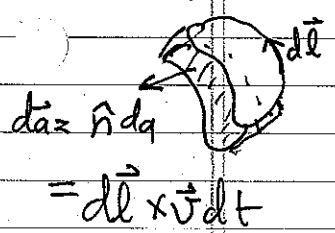 dl⃗
da⃗ = n̂ da
= dl⃗ × v⃗ dt